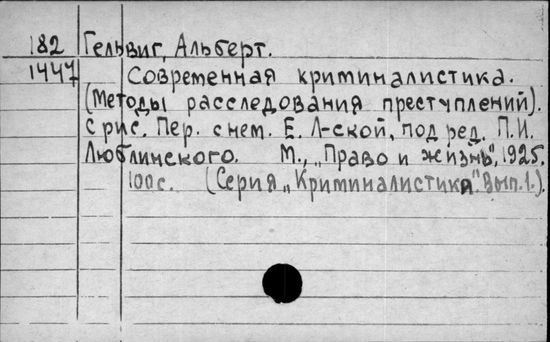 182 Гельвиг, Альберт.
1447 Современная криминалистика.
(Методы расследования преступлений).
С рис. Пер. с нем. Е. Л-ской, под ред. П.И.
Люблинского. М., „Право и жизнь", 1925.
100 с. (Серия „Криминалистика". Вып. 1.).